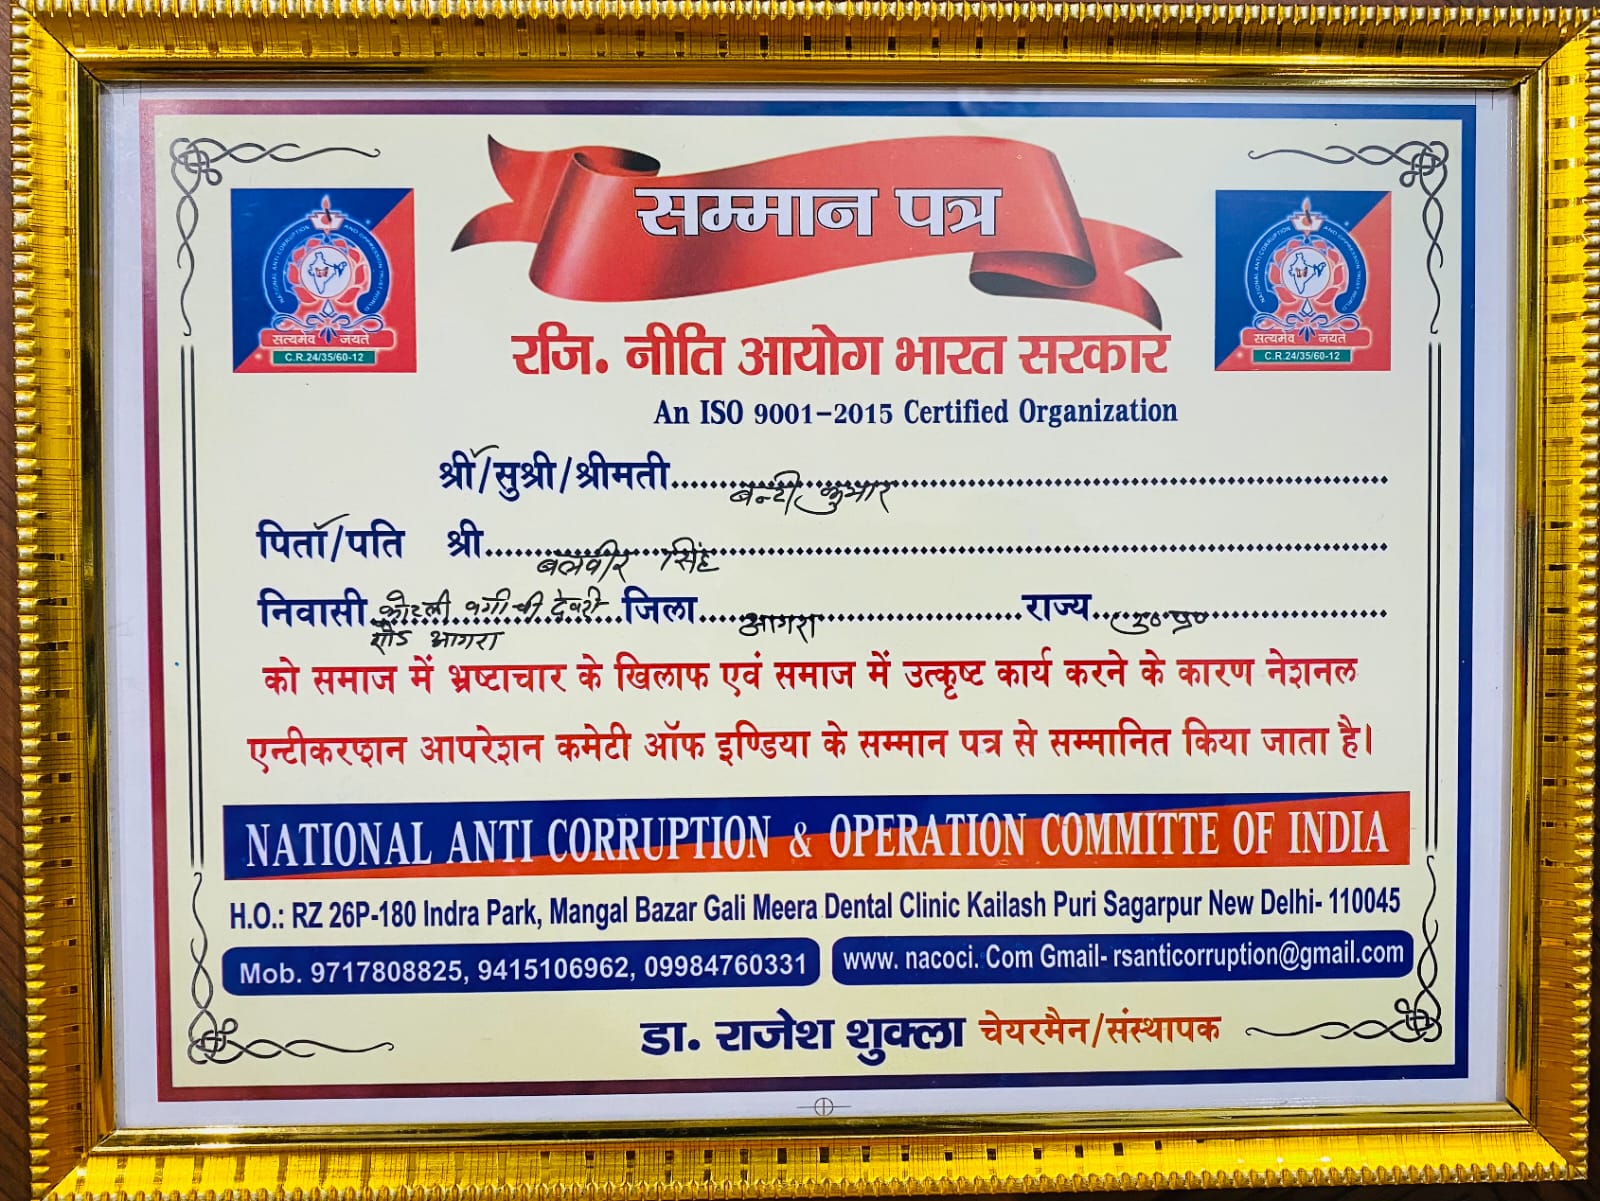 सम्मान पत्र
NATIONAL ANTI CORRUPTION AND OPPRESSION TRUST WORLD
सत्यमेव जयते
C.R.24/35/60-12
NATIONAL ANTI CORRUPTION AND OPPRESSION TRUST WORLD
सत्यमेव जयते
C.R.24/35/60-12
रजि. नीति आयोग भारत सरकार
An ISO 9001-2015 Certified Organization
श्री/सुश्री/श्रीमती बन्टी कुमार
पिता/पति श्री बलवीर सिंह
निवासी कोटली बगीची देवरी जिला आगरा राज्य उ०प्र०
रोड आगरा
को समाज में भ्रष्टाचार के खिलाफ एवं समाज में उत्कृष्ट कार्य करने के कारण नेशनल
एन्टीकरप्शन आपरेशन कमेटी ऑफ इण्डिया के सम्मान पत्र से सम्मानित किया जाता है।
NATIONAL ANTI CORRUPTION & OPERATION COMMITTE OF INDIA
H.O.: RZ 26P-180 Indra Park, Mangal Bazar Gali Meera Dental Clinic Kailash Puri Sagarpur New Delhi- 110045
Mob. 9717808825, 9415106962, 09984760331
www. nacoci. Com Gmail- rsanticorruption@gmail.com
डा. राजेश शुक्ला चेयरमैन/संस्थापक